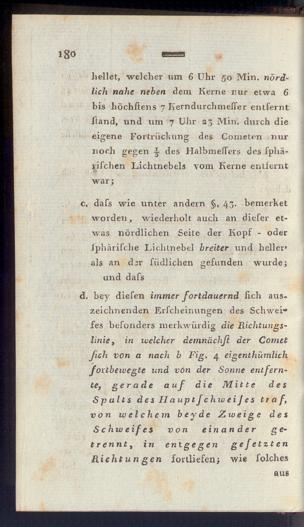 180
hellet, welcher um 6 Uhr 50 Min. nörd-
lich nahe neben dem Kerne nur etwa 6
bis höchſtens 7 Kerndurchmeſſer entfernt
ſtand, und um 7 Uhr 23 Min. durch die
eigene Fortrückung des Cometen nur
noch gegen ⅓ des Halbmeſſers des ſphä-
riſchen Lichtnebels vom Kerne entfernt
war;
c. daſs wie unter andern §. 43. bemerket
worden, wiederholt auch an dieſer et-
was nördlichen Seite der Kopf - oder
ſphäriſche Lichtnebel breiter und heller
als an der ſüdlichen gefunden wurde;
und daſs
d. bey dieſen immer fortdauernd ſich aus-
zeichnenden Erſcheinungen des Schwei-
fes beſonders merkwürdig die Richtungs-
linie, in welcher demnächſt der Comet
ſich von a nach b Fig. 4 eigenthümlich
fortbewegte und von der Sonne entfern-
te, gerade auf die Mitte des
Spalts des Hauptſchweiſes traf,
von welchem beyde Zweige des
Schweifes von einander ge-
trennt, in entgegen geſetzten
Richtungen fortlieſen; wie ſolches
aus